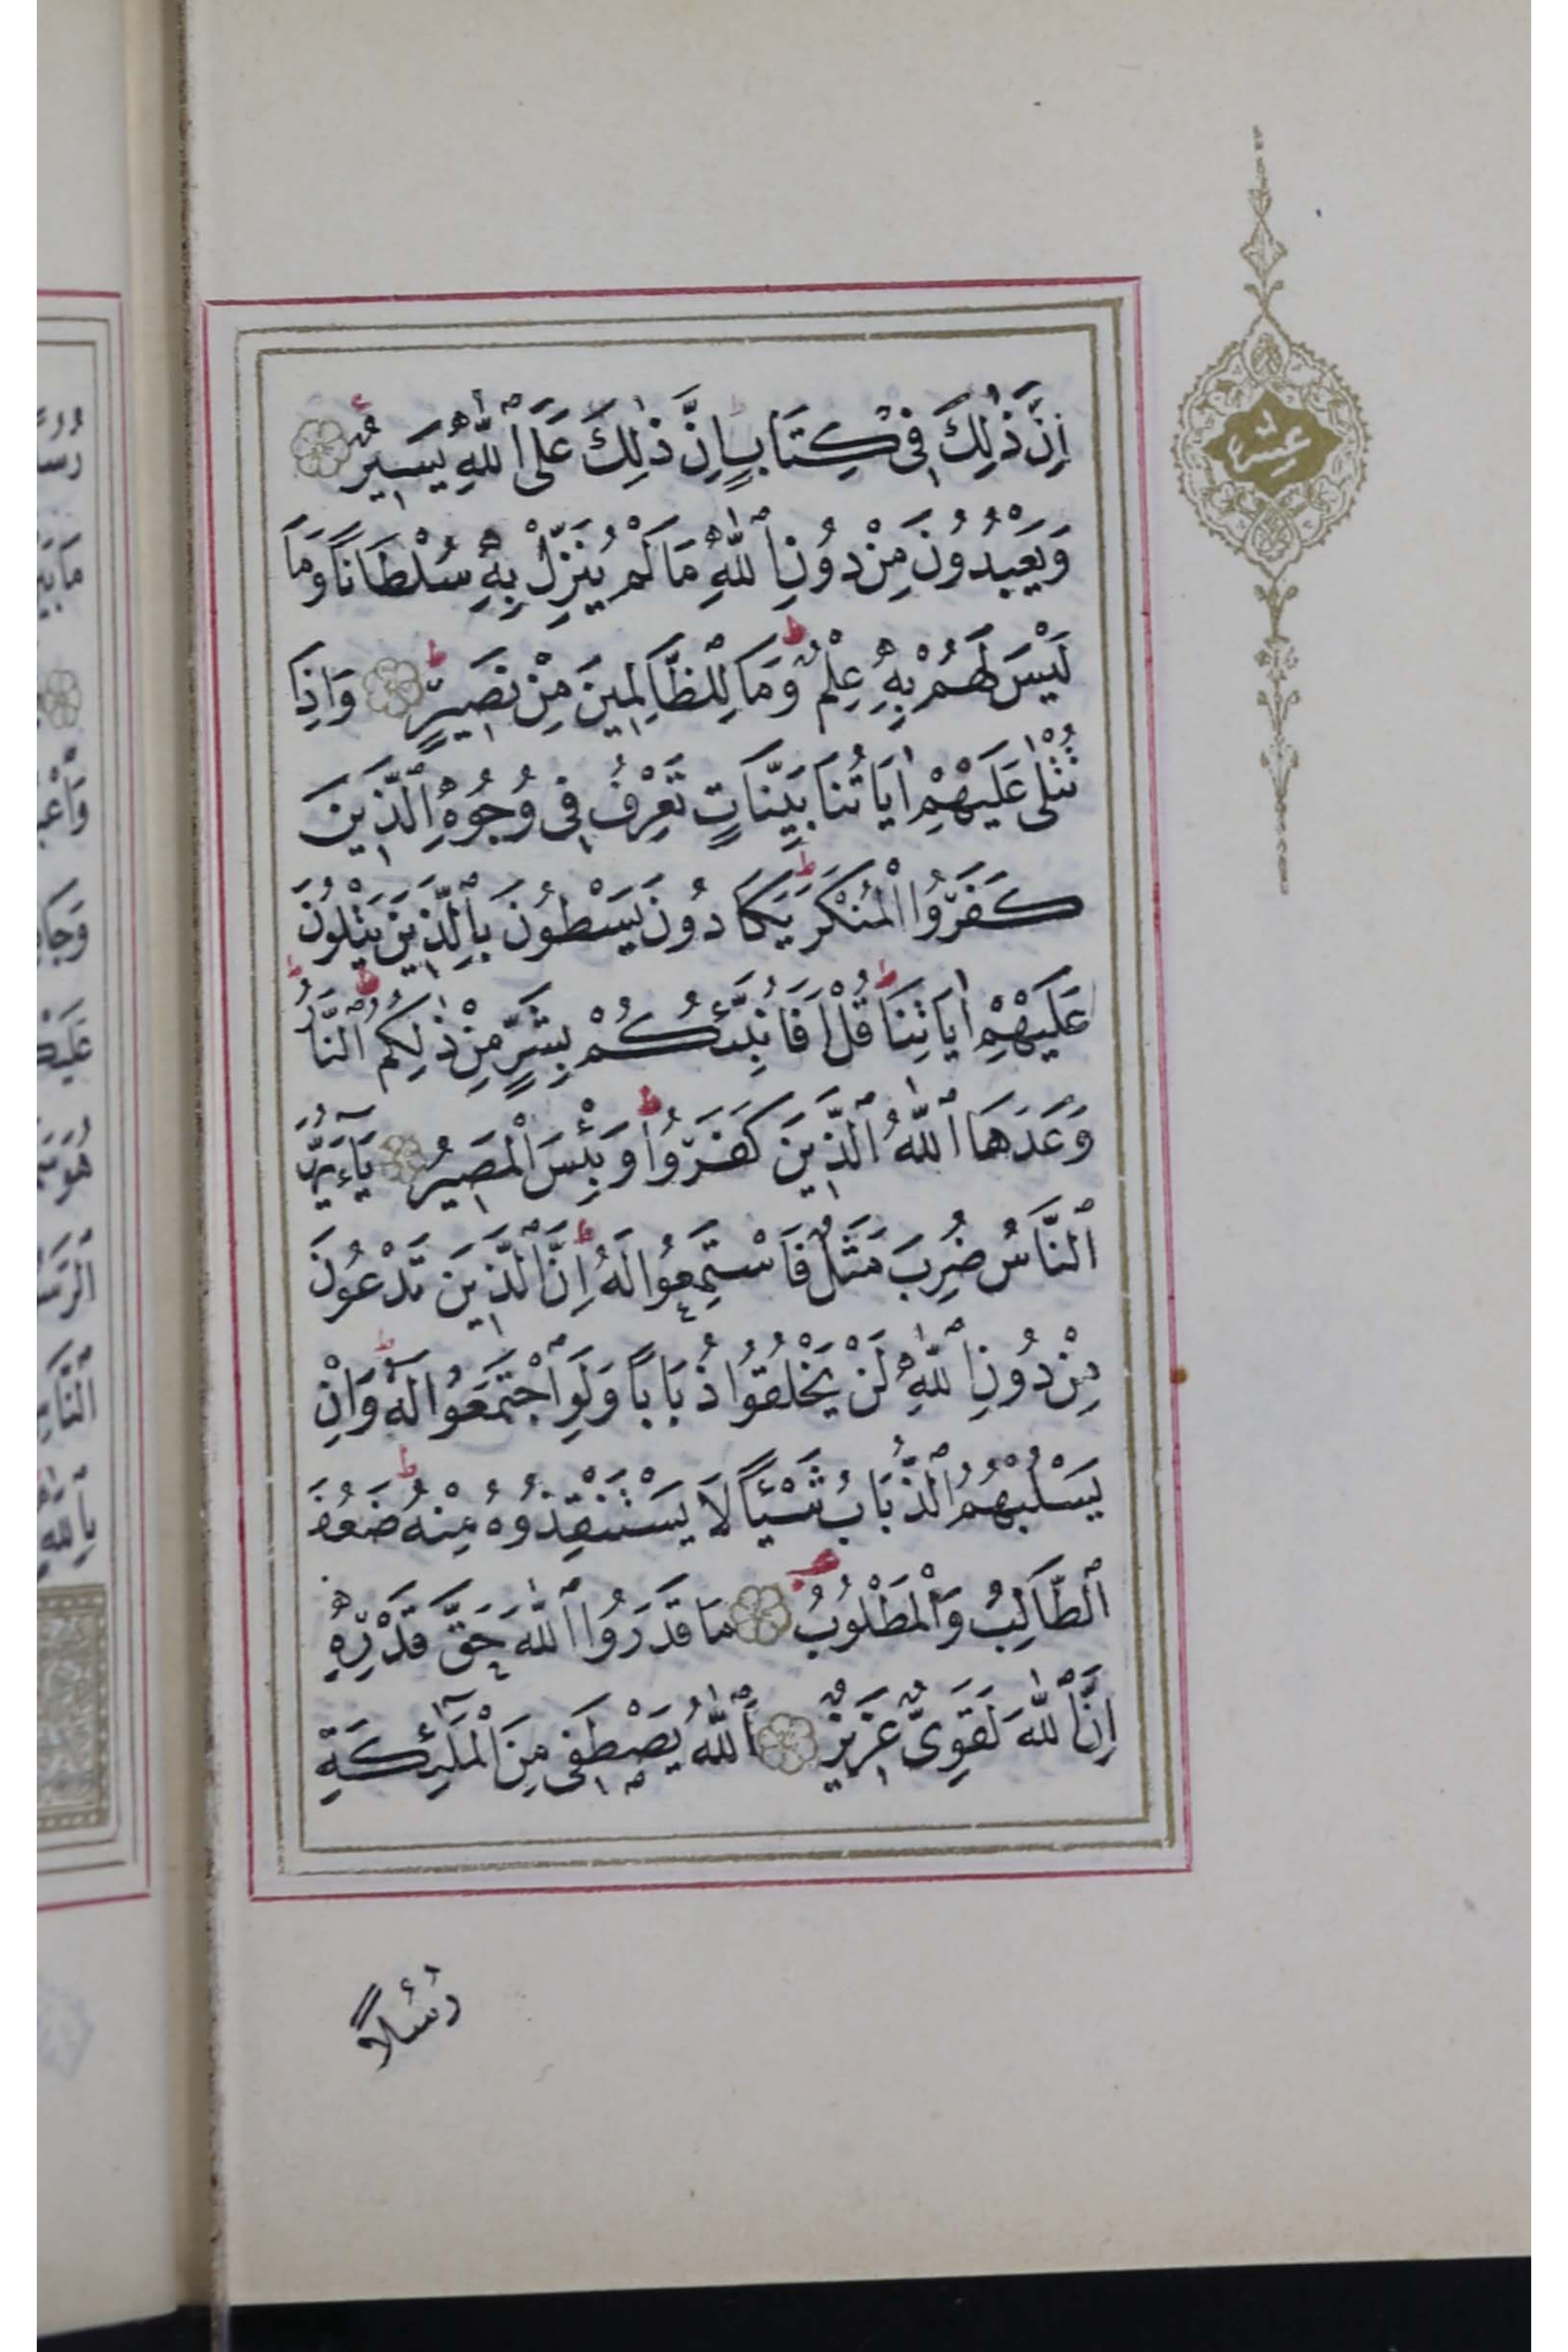 اِنَّ ذٰلِكَ فٖى كِتَابٍ اِنَّ ذٰلِكَ عَلَى ٱللّٰهِ يَسٖيرٌ
وَيَعْبُدُونَ مِنْ دُونِ ٱللّٰهِ مَا لَمْ يُنَزِّلْ بِهٖ سُلْطَانًا وَمَا
لَيْسَ لَهُمْ بِهٖ عِلْمٌ وَمَا لِلظَّالِمٖينَ مِنْ نَصٖيرٍ وَاِذَا
تُتْلٰى عَلَيْهِمْ اٰيَاتُنَا بَيِّنَاتٍ تَعْرِفُ فٖى وُجُوهِ ٱلَّذٖينَ
كَفَرُوا الْمُنْكَرَ يَكَادُونَ يَسْطُونَ بِٱلَّذٖينَ يَتْلُونَ
عَلَيْهِمْ اٰيَاتِنَا قُلْ اَفَاُنَبِّئُكُمْ بِشَرٍّ مِنْ ذٰلِكُمُ ٱلنَّارُ
وَعَدَهَا ٱللّٰهُ ٱلَّذٖينَ كَفَرُوا وَبِئْسَ الْمَصٖيرُ يَٓاءَيُّهَا
ٱلنَّاسُ ضُرِبَ مَثَلٌ فَاسْتَمِعُوا لَهُ اِنَّ ٱلَّذٖينَ تَدْعُونَ
مِنْ دُونِ ٱللّٰهِ لَنْ يَخْلُقُوا ذُبَابًا وَلَوِ ٱجْتَمَعُوا لَهُ وَاِنْ
يَسْلُبْهُمُ ٱلذُّبَابُ شَيْئًا لَا يَسْتَنْقِذُوهُ مِنْهُ ضَعُفَ
ٱلطَّالِبُ وَٱلْمَطْلُوبُ مَا قَدَرُوا ٱللّٰهَ حَقَّ قَدْرِهٖ
اِنَّ ٱللّٰهَ لَقَوِىٌّ عَزٖيزٌ ٱَللّٰهُ يَصْطَفٖى مِنَ الْمَلٰٓئِكَةِ
رُسُلًا